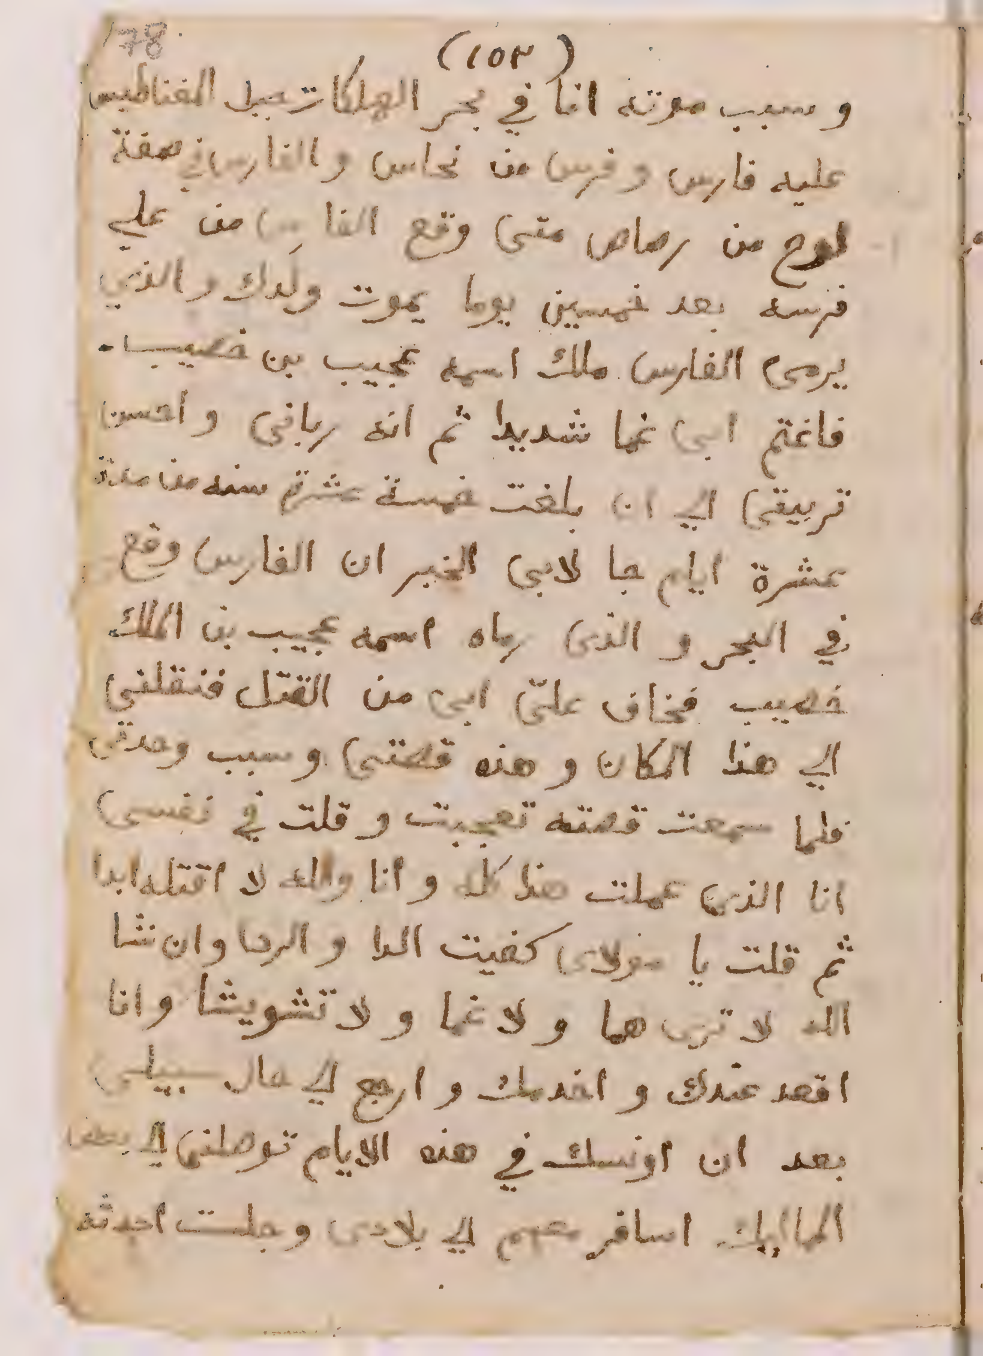 78
(١٥٣)
و سبب موته ان في بحر الهلكات جبل المغناطيس
عليه فارس و فرس من نحاس و الفارس في صفة
لوح من رصاص متى وقع الفارس من علي
فرسه بعد خمسين يوما يموت ولدك و الذي
يرمى الفارس ملك اسمه عجيب بن خصيب
فاغتم ابى غما شديدا ثم انه ربانى و احسن
تربيتى الي ان بلغت خمسة عشرة سنه من مدة
عشرة ايام جا لابى الخبر ان الفارس وقع
في البحر و الذى رماه اسمه عجيب بن الملك
خصيب فخاف علىّ ابى من القتل فنقلنى
الي هذا المكان و هذه قصتى و سبب وحدتى
فلما سمعت قصته تعجبت و قلت في نفسى
انا الذى عملت هذا كله و انا والله لا اقتله ابدا
ثم قلت يا مولاى كفيت الدا و الردا و ان شا
الله لا ترى هما و لا غما و لا تشويشا و انا
اقعد عندك و اخدمك و ارجع الي حال سبيلى
بعد ان اونسك في هذه الايام توصلنى الي بعض
المماليك اسافر معهم الي بلادى و جلست احدثه